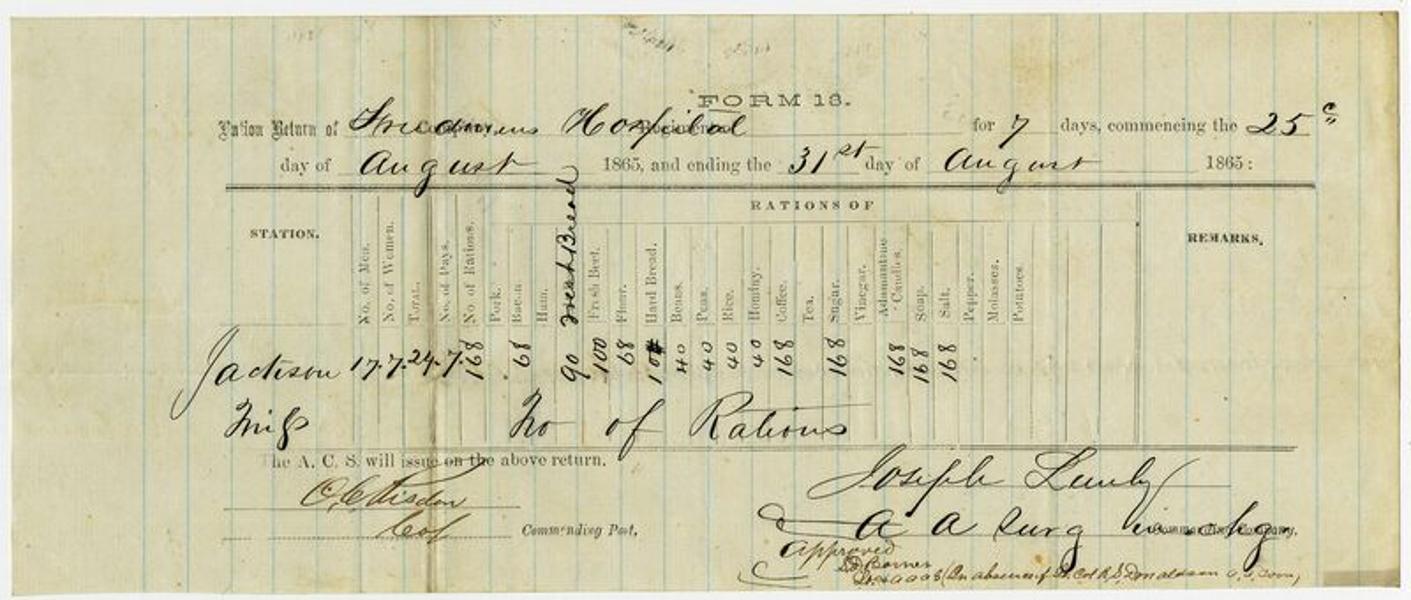 FORM 18.
Ration Return of Freedmens Hospital for 7 days, commencing the 25
day of August 1865, and ending the 31st day of August 1865:
RATIONS OF
STATION. No. of Men. No. of Women. Total. No. of Days. No. of Rations. Pork. Bacon. Ham. Fresh Bread Fresh Beef. Flour. Hard Bread. Beans. Peas. Rice. Hominy. Coffee. Tea. Sugar. Vinegar. Adamantine Candles. Soap. Salt. Pepper. Molasses. Potatoes. REMARKS.
Jackson 17. 7. 24. 7. 168 68 90 100 68 40 40 40 40 168 168 168 168 168
Miss No of Rations
The A. C. S. will issue on the above return.
Joseph
Col Commanding Post, A A Surg in chg
Approved
(In absence of Lt Col R. S. Donaldson